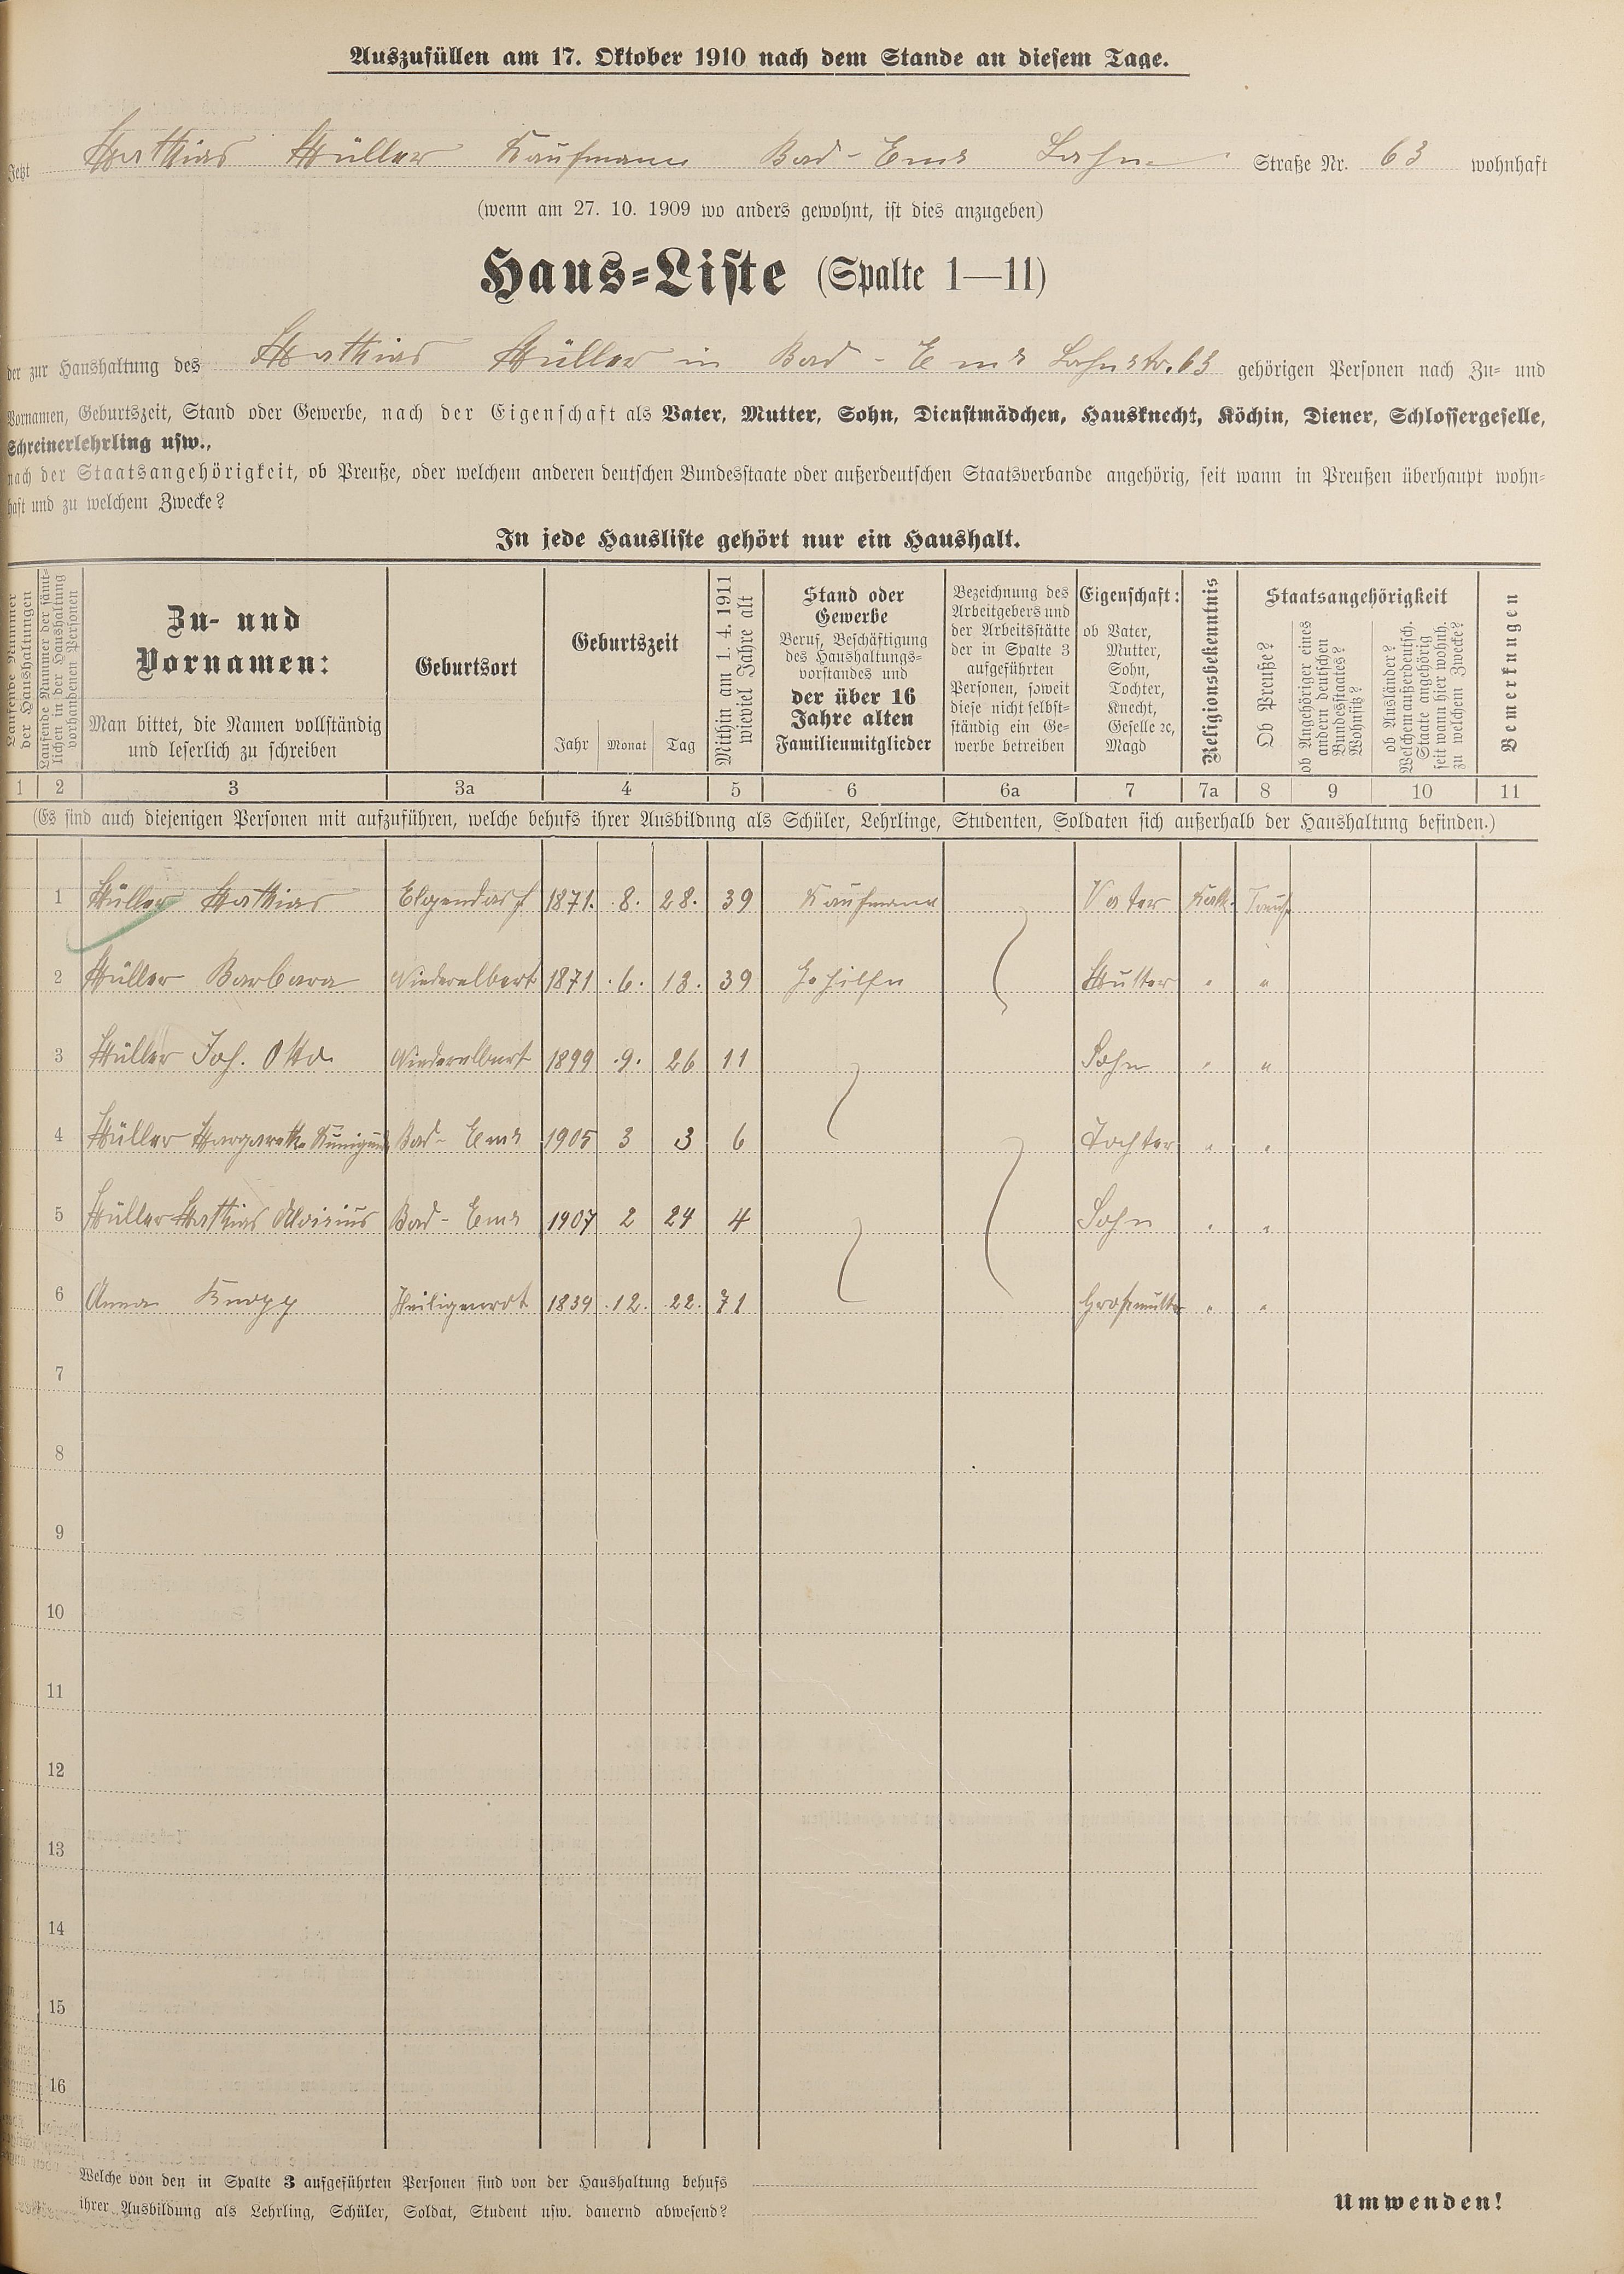 Auszufüllen am 17. Oktober 1910 nach dem Stande an diesem Tage.
Jetzt Mathias Müller Kaufmann Bad-Ems Lahn Straße Nr. 63 wohnhaft
(wenn am 27. 10. 1909 wo anders gewohnt, ist dies anzugeben)
Haus-Liste (Spalte 1—11)
der zur Haushaltung des Mathias Müller in Bad-Ems Lahnstr. 63 gehörigen Personen nach Zu- und
Vornamen, Geburtszeit, Stand oder Gewerbe, nach der Eigenschaft als Vater, Mutter, Sohn, Dienstmädchen, Hausknecht, Köchin, Diener, Schlossergeselle,
Schreinerlehrling usw.,
nach der Staatsangehörigkeit, ob Preuße, oder welchem anderen deutschen Bundesstaate oder außerdeutschen Staatsverbande angehörig, seit wann in Preußen überhaupt wohn-
haft und zu welchem Zwecke?
In jede Hausliste gehört nur ein Haushalt.
Laufende Nummer der Haushaltungen
Laufende Nummer der sämt-
lichen in der Haushaltung
vorhandenen Personen
Zu- und
Vornamen:
Man bittet, die Namen vollständig
und leserlich zu schreiben
Geburtsort
Geburtszeit
Jahr Monat Tag
Mithin am 1. 4. 1911
wieviel Jahre alt
Stand oder
Gewerbe
Beruf, Beschäftigung
des Haushaltungs-
vorstandes und
der über 16
Jahre alten
Familienmitglieder
Bezeichnung des
Arbeitgebers und
der Arbeitsstätte
der in Spalte 3
aufgeführten
Personen, soweit
diese nicht selbst-
ständig ein Ge-
werbe betreiben
Eigenschaft:
ob Vater,
Mutter,
Sohn,
Tochter,
Knecht,
Geselle ꝛc,
Magd
Religionsbekenntnis
Staatsangehörigkeit
Ob Preuße?
ob Angehöriger eines
andern deutschen
Bundesstaates?
Wohnsitz?
ob Ausländer?
Welchem außerdeutsch.
Staate angehörig
seit wann hier wohnh.
zu welchem Zwecke?
Bemerkungen
1 2 3 3a 4 5 6 6a 7 7a 8 9 10 11
(Es sind auch diejenigen Personen mit aufzuführen, welche behufs ihrer Ausbildung als Schüler, Lehrlinge, Studenten, Soldaten sich außerhalb der Haushaltung befinden.)
1 Müller Mathias Elgendorf 1871. 8. 28. 39 Kaufmann Vater Kath.
2 Müller Barbara Niederelbert 1871 6. 13. 39 Gehilfin Mutter " "
3 Müller Joh. Otto Niederelbert 1899 9. 26 11 Sohn " "
4 Müller Margareth Bad-Ems 1905 3 3 6 Tochter " "
5 Müller Mathias Aloisius Bad-Ems 1907 2 24 4 Sohn " "
6 Anna Knopp Heiligenrot 1839 12. 22. 71 Großmutter " "
7
8
9
10
11
12
13
14
15
16
Welche von den in Spalte 3 aufgeführten Personen sind von der Haushaltung behufs
ihrer Ausbildung als Lehrling, Schüler, Soldat, Student usw. dauernd abwesend?
Umwenden!